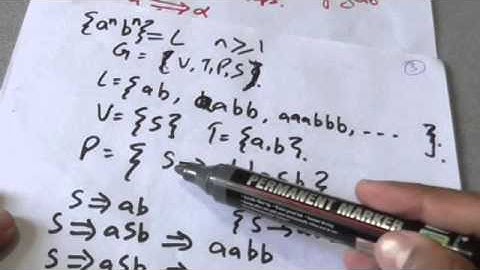 ⇒ α
{aⁿbⁿ} = L n ≥ 1
G = {V, T, P, S}.
③
L = {ab, aabb, aaabbb, ... }.
V = {S} T = {a,b}.
P = { S →
S ⇒ ab
{ S →
S ⇒ aSb ⇒ aabb
S ⇒ aSb ⇒
PERMANENT MARKER